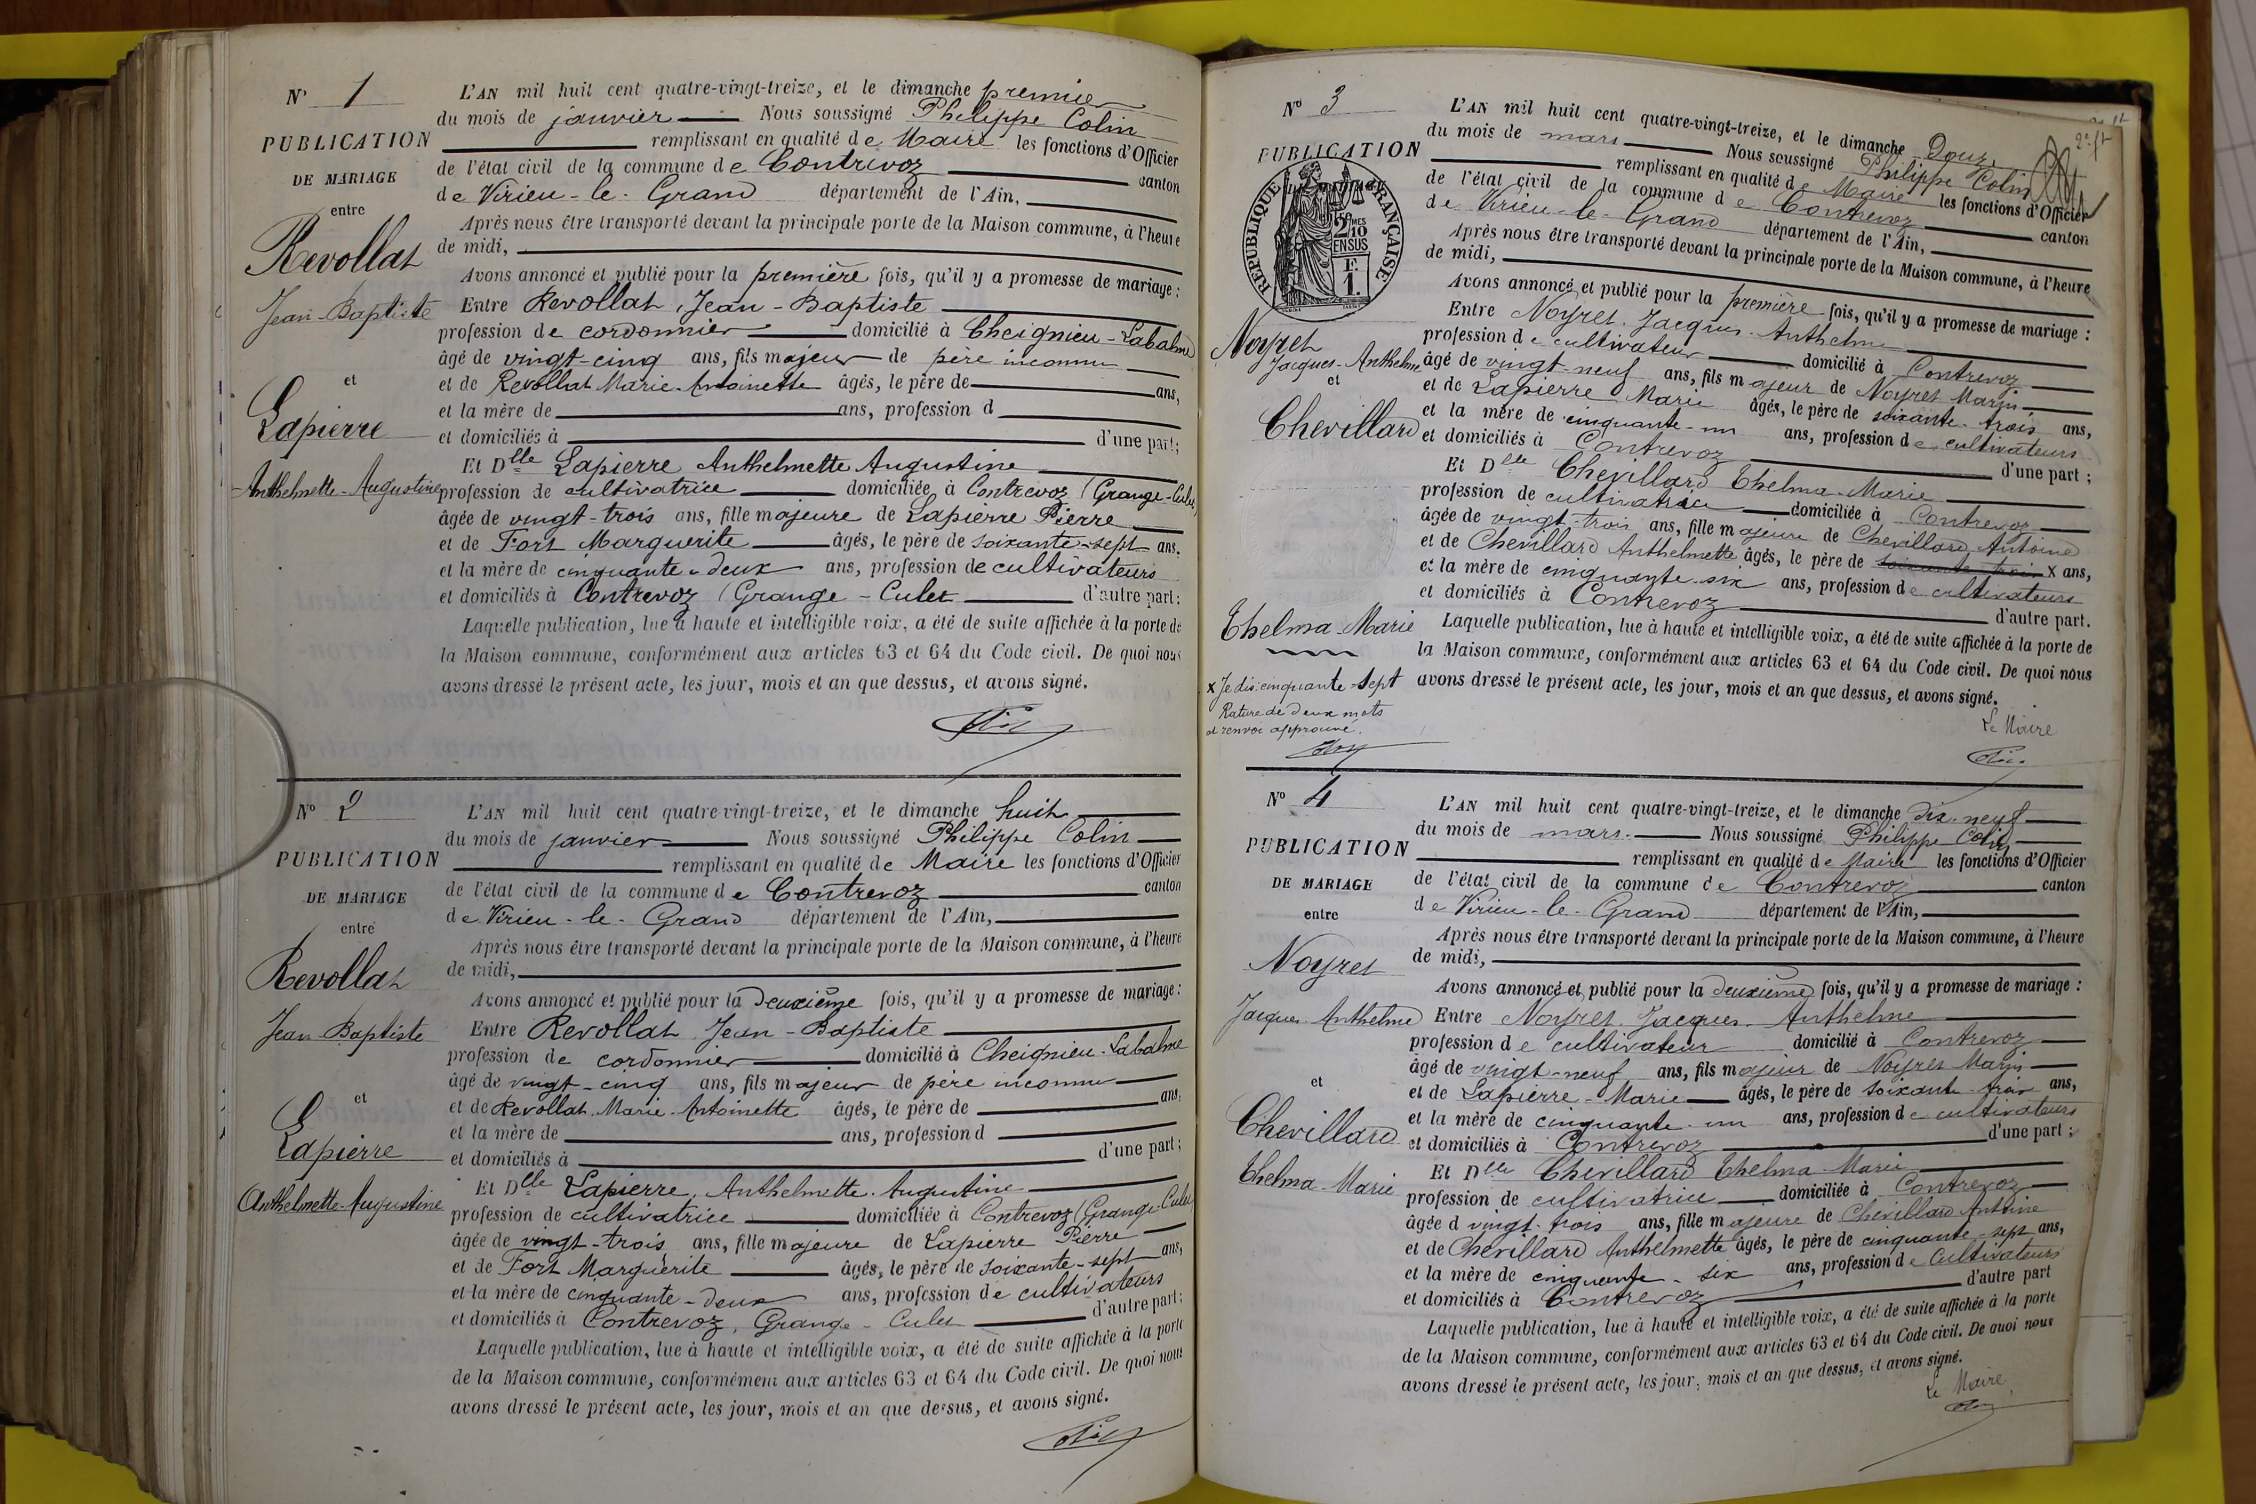 N° 1
PUBLICATION
DE MARIAGE
entre
Revollat
Jean-Baptiste
et
Lapierre
Anthelmette-Augustine
L'AN mil huit cent quatre-vingt-treize, et le dimanche premier
du mois de janvier Nous soussigné Philippe Colin
remplissant en qualité de Maire les fonctions d'Officier
de l'état civil de la commune de Contrevoz canton
de Virieu-le-Grand département de l'Ain,
Après nous être transporté devant la principale porte de la Maison commune, à l'heure
de midi,
Avons annoncé et publié pour la première fois, qu'il y a promesse de mariage :
Entre Revollat, Jean-Baptiste
profession de cordonnier domicilié à Cheignieu-Labalme
âgé de vingt-cinq ans, fils majeur de père inconnu
et de Revollat Marie-Antoinette âgés, le père de ans,
et la mère de ans, profession d
et domiciliés à d'une part;
Et Dlle Lapierre Anthelmette Augustine
profession de cultivatrice domiciliée à Contrevoz (Grange-Culet)
âgée de vingt-trois ans, fille majeure de Lapierre Pierre
et de Fort Marguerite âgés, le père de soixante-sept ans,
et la mère de cinquante-deux ans, profession de cultivateurs
et domiciliés à Contrevoz (Grange-Culet d'autre part:
Laquelle publication, lue à haute et intelligible voix, a été de suite affichée à la porte de
la Maison commune, conformément aux articles 63 et 64 du Code civil. De quoi nous
avons dressé le présent acte, les jour, mois et an que dessus, et avons signé.
N° 2
PUBLICATION
DE MARIAGE
entre
Revollat
Jean-Baptiste
et
Lapierre
Anthelmette-Augustine
L'AN mil huit cent quatre-vingt-treize, et le dimanche huit
du mois de janvier Nous soussigné Philippe Colin
remplissant en qualité de Maire les fonctions d'Officier
de l'état civil de la commune de Contrevoz canton
de Virieu-le-Grand département de l'Ain,
Après nous être transporté devant la principale porte de la Maison commune, à l'heure
de midi,
Avons annoncé et publié pour la deuxième fois, qu'il y a promesse de mariage :
Entre Revollat Jean-Baptiste
profession de cordonnier domicilié à Cheignieu-Labalme
âgé de vingt-cinq ans, fils majeur de père inconnu
et de Revollat Marie-Antoinette âgés, le père de ans,
et la mère de ans, profession d
et domiciliés à d'une part;
Et Dlle Lapierre, Anthelmette-Augustine
profession de cultivatrice domiciliée à Contrevoz (Grange-Culet)
âgée de vingt-trois ans, fille majeure de Lapierre Pierre
et de Fort Marguerite âgés, le père de soixante-sept ans,
et la mère de cinquante-deux ans, profession de cultivateurs
et domiciliés à Contrevoz, Grange-Culet d'autre part:
Laquelle publication, lue à haute et intelligible voix, a été de suite affichée à la porte
de la Maison commune, conformément aux articles 63 et 64 du Code civil. De quoi nous
avons dressé le présent acte, les jour, mois et an que dessus, et avons signé.
N° 3
PUBLICATION
RÉPUBLIQUE FRANÇAISE
2/10
EN SUS
F.
1.
Noyret
Jacques-Anthelme
et
Chevillard
Thelma-Marie
x Je dis: cinquante-sept
Rature de deux mots
et renvoi approuvé.
2e ft
L'AN mil huit cent quatre-vingt-treize, et le dimanche Douze
du mois de mars Nous soussigné Philippe Colin
remplissant en qualité de Maire les fonctions d'Officier
de l'état civil de la commune de Contrevoz canton
de Virieu-le-Grand département de l'Ain,
Après nous être transporté devant la principale porte de la Maison commune, à l'heure
de midi,
Avons annoncé et publié pour la première fois, qu'il y a promesse de mariage :
Entre Noyret, Jacques-Anthelme
profession de cultivateur domicilié à Contrevoz
âgé de vingt-neuf ans, fils majeur de Noyret Marin
et de Lapierre Marie âgés, le père de soixante-trois ans,
et la mère de cinquante-un ans, profession de cultivateurs
et domiciliés à Contrevoz d'une part ;
Et Dlle Chevillard Thelma-Marie
profession de cultivatrice domiciliée à Contrevoz
âgée de vingt-trois ans, fille majeure de Chevillard Antoine
et de Chevillard Anthelmette âgés, le père de soixante-trois x ans,
et la mère de cinquante-six ans, profession de cultivateurs
et domiciliés à Contrevoz d'autre part.
Laquelle publication, lue à haute et intelligible voix, a été de suite affichée à la porte de
la Maison commune, conformément aux articles 63 et 64 du Code civil. De quoi nous
avons dressé le présent acte, les jour, mois et an que dessus, et avons signé.
Le Maire
N° 4
PUBLICATION
DE MARIAGE
entre
Noyret
Jacques-Anthelme
et
Chevillard
Thelma-Marie
L'AN mil huit cent quatre-vingt-treize, et le dimanche dix-neuf
du mois de mars Nous soussigné Philippe Colin
remplissant en qualité de Maire les fonctions d'Officier
de l'état civil de la commune de Contrevoz canton
de Virieu-le-Grand département de l'Ain,
Après nous être transporté devant la principale porte de la Maison commune, à l'heure
de midi,
Avons annoncé et publié pour la deuxième fois, qu'il y a promesse de mariage :
Entre Noyret, Jacques-Anthelme
profession de cultivateur domicilié à Contrevoz
âgé de vingt-neuf ans, fils majeur de Noyret Marin
et de Lapierre-Marie âgés, le père de soixante-trois ans,
et la mère de cinquante-un ans, profession de cultivateurs
et domiciliés à Contrevoz d'une part ;
Et Dlle Chevillard Thelma-Marie
profession de cultivatrice domiciliée à Contrevoz
âgée d vingt-trois ans, fille majeure de Chevillard Antoine
et de Chevillard Anthelmette âgés, le père de cinquante-sept ans,
et la mère de cinquante-six ans, profession de cultivateurs
et domiciliés à Contrevoz d'autre part
Laquelle publication, lue à haute et intelligible voix, a été de suite affichée à la porte
de la Maison commune, conformément aux articles 63 et 64 du Code civil. De quoi nous
avons dressé le présent acte, les jour, mois et an que dessus, et avons signé.
Le Maire,